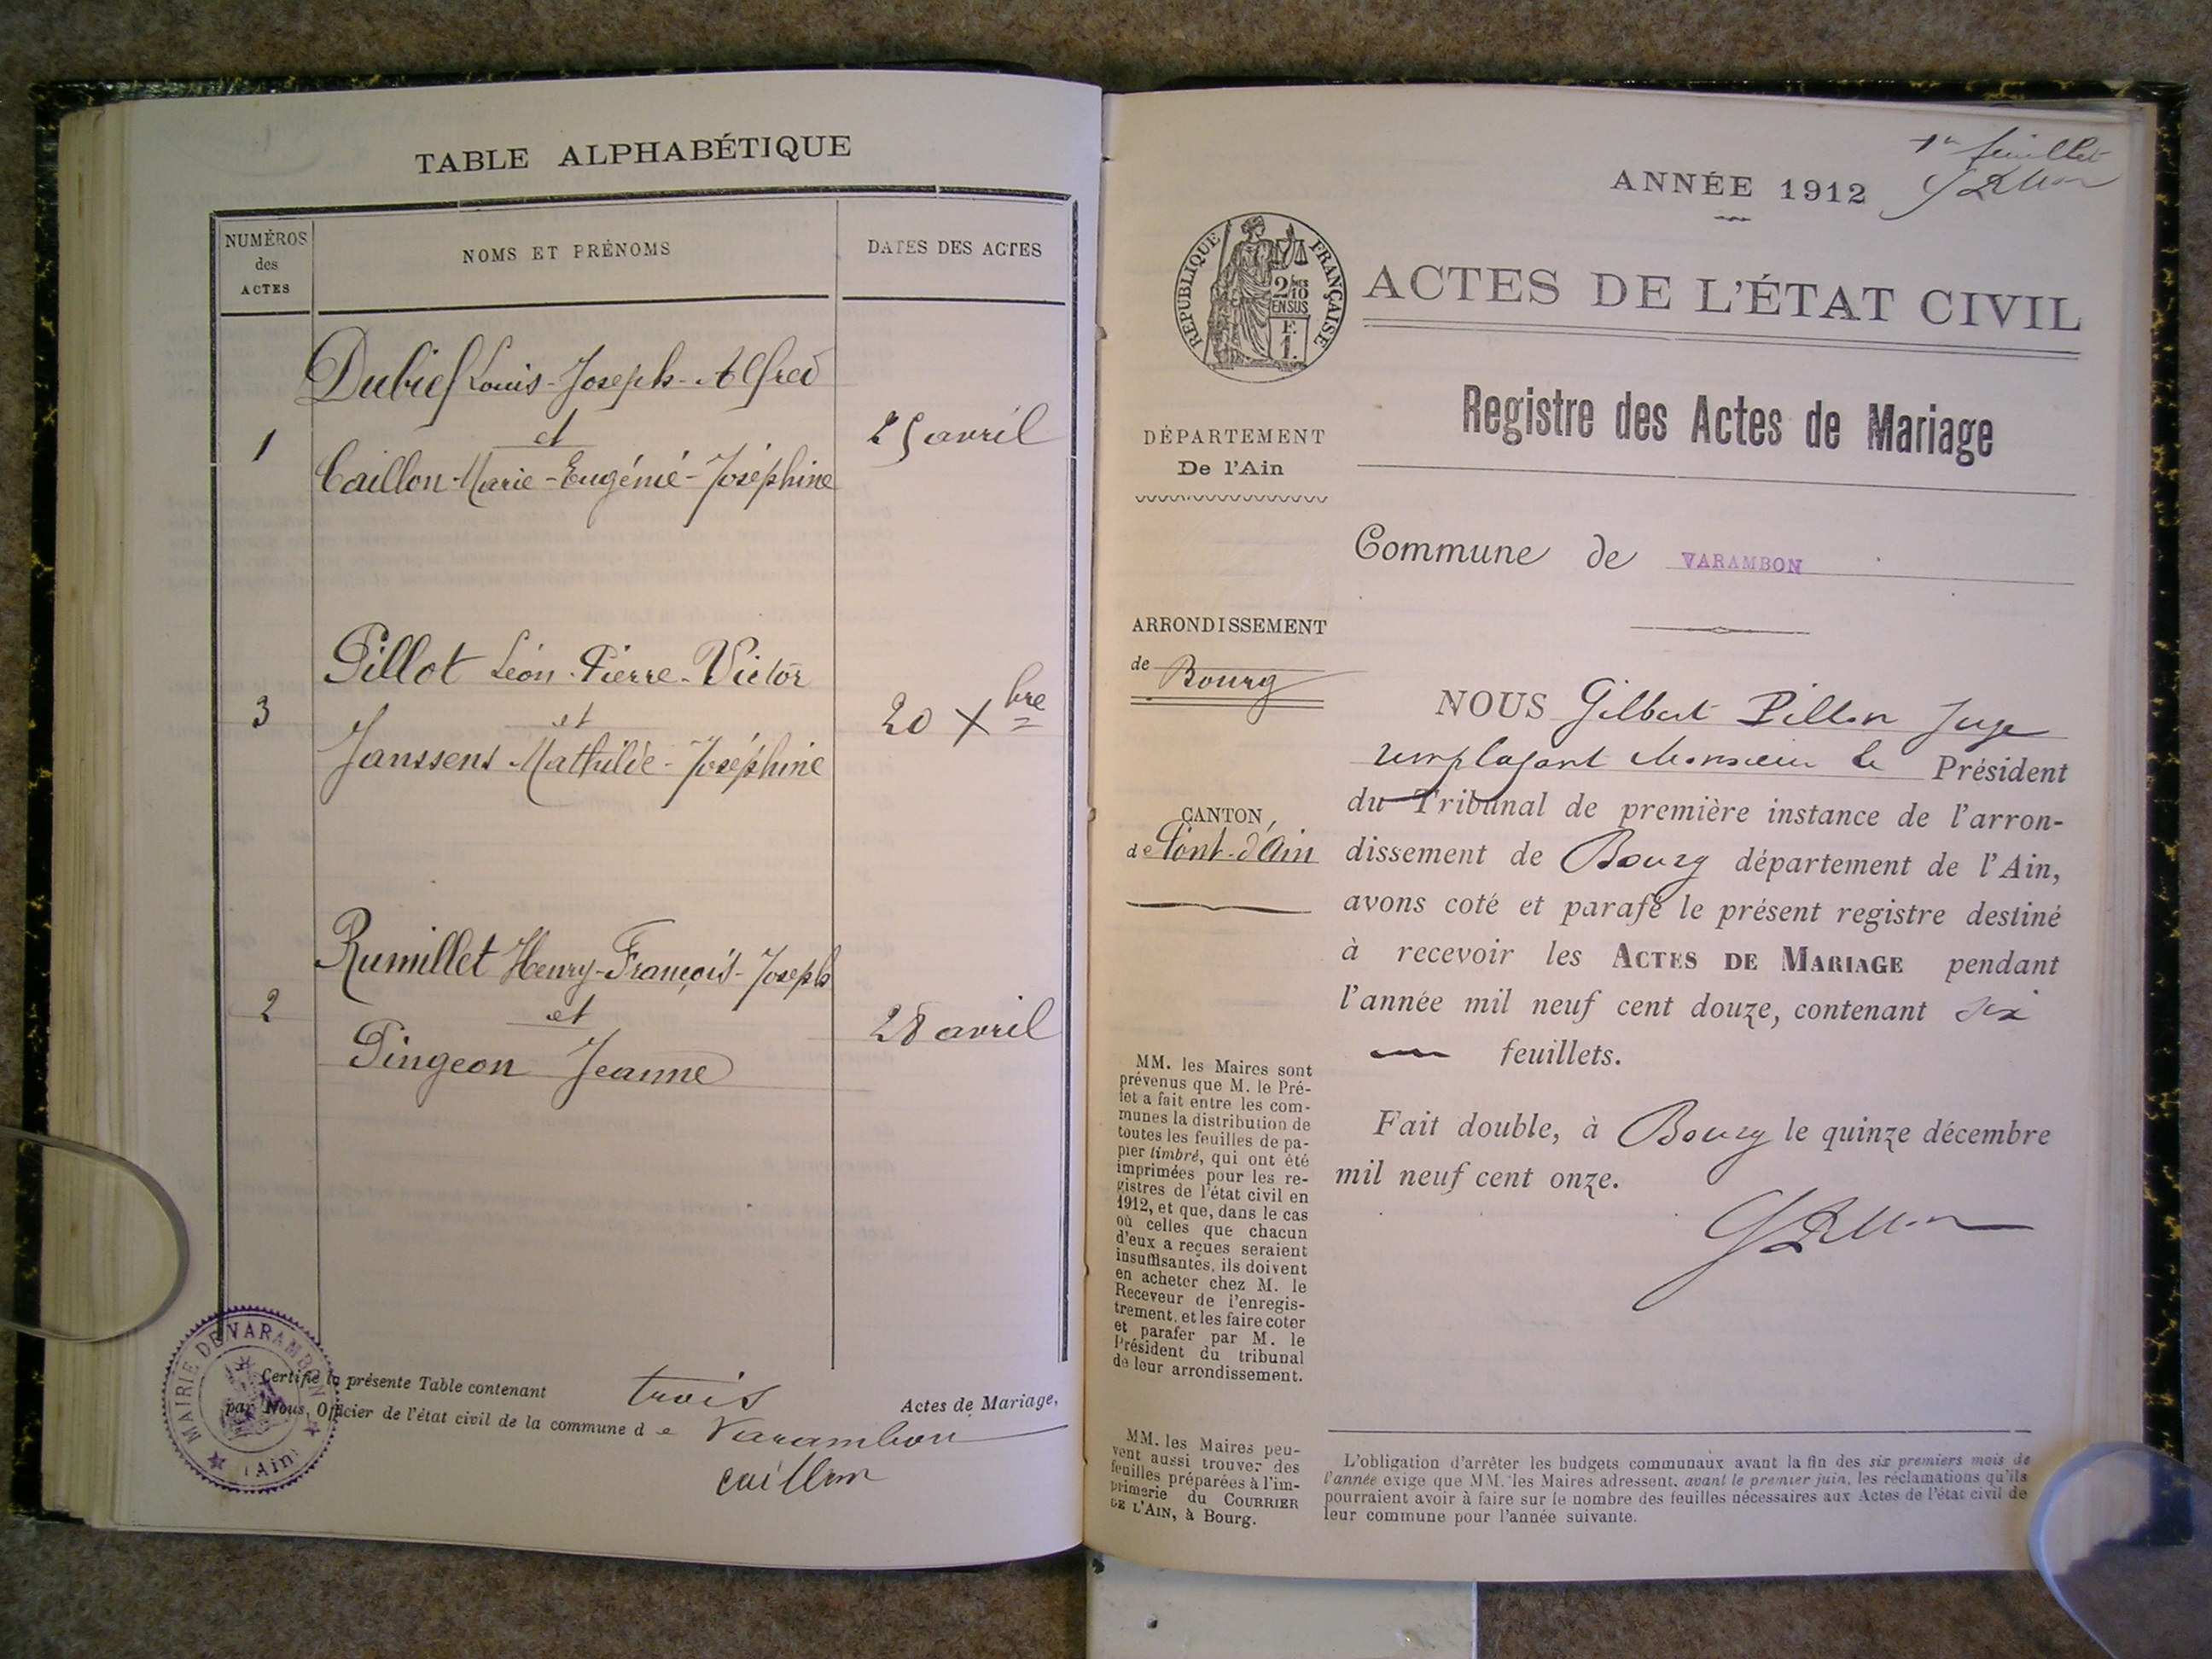 TABLE ALPHABÉTIQUE
NUMÉROS
des
ACTES
NOMS ET PRÉNOMS
DATES DES ACTES
Dubief Louis-Joseph-Alfred
et
1
25 avril
Caillon-Marie-Eugénie-Joséphine
Pillot Léon-Pierre-Victor
3
et
20 Xbre
Janssens Mathilde-Joséphine
Rumillet Henry-François-Joseph
2
et
28 avril
Pingeon Jeanne
Certifié la présente Table contenant trois Actes de Mariage,
par Nous, Officier de l'état civil de la commune de Varambon
caillon
MAIRIE DE VARAMBON
(Ain)
1er feuillet
ANNÉE 1912
RÉPUBLIQUE FRANÇAISE
2/10 MES
EN SUS
F.
1.
ACTES DE L'ÉTAT CIVIL
Registre des Actes de Mariage
DÉPARTEMENT
De l'Ain
Commune de VARAMBON
ARRONDISSEMENT
de Bourg
CANTON
de Pont-d'Ain
NOUS Gilbert Pillon Juge
remplaçant Monsieur le Président
du Tribunal de première instance de l'arron-
dissement de Bourg département de l'Ain,
avons coté et parafé le présent registre destiné
à recevoir les ACTES DE MARIAGE pendant
l'année mil neuf cent douze, contenant six
feuillets.
Fait double, à Bourg le quinze décembre
mil neuf cent onze.
MM. les Maires sont
prévenus que M. le Pré-
fet a fait entre les com-
munes la distribution de
toutes les feuilles de pa-
pier timbré, qui ont été
imprimées pour les re-
gistres de l'état civil en
1912, et que, dans le cas
où celles que chacun
d'eux a reçues seraient
insuffisantes, ils doivent
en acheter chez M. le
Receveur de l'enregis-
trement, et les faire coter
et parafer par M. le
Président du tribunal
de leur arrondissement.
MM. les Maires peu-
vent aussi trouver des
feuilles préparées à l'im-
primerie du COURRIER
DE L'AIN, à Bourg.
L'obligation d'arrêter les budgets communaux avant la fin des six premiers mois de
l'année exige que MM. les Maires adressent, avant le premier juin, les réclamations qu'ils
pourraient avoir à faire sur le nombre des feuilles nécessaires aux Actes de l'état civil de
leur commune pour l'année suivante.